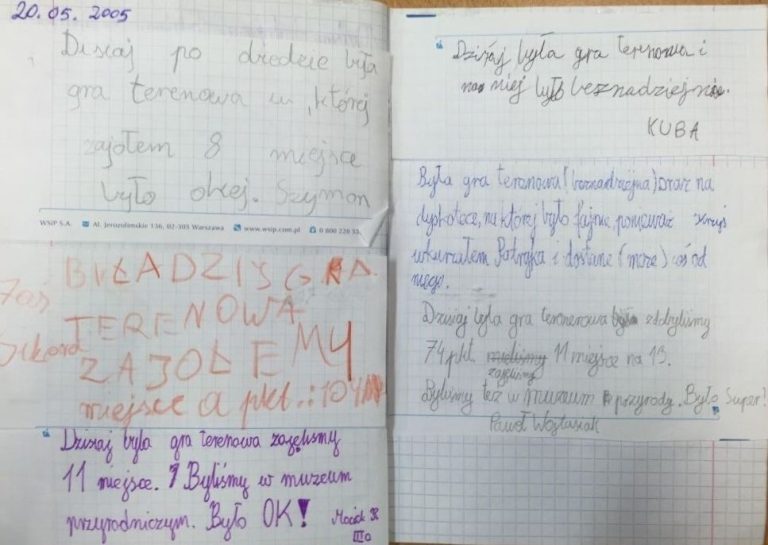 20.05.2005
Dzisaj po drodece była
gra terenowa w której
zajołem 8 miejsce
było okej. Szymon
WSiP S.A. Al. Jerozolimskie 136, 02-305 Warszawa www.wsip.com.pl 0 800 220 55
BYŁA DZIŚ GRA
TERENOWA
ZAJOLEMY
miejsce a pkt.: 104
Dzisiaj była gra terenowa zajęliśmy
11 miejsce. Byliśmy w muzeum
przyrodniczym. Było OK!
Maciek
III a
Dzisiaj była gra terenowa i
na niej było beznadziejnie.
KUBA
Była gra terenowa (beznadziejna) oraz na
dyskotece, na której było fajnie, ponieważ
wkurzałem Patryka i dostane (może) coś od
niego.
Dzisiaj była gra terenerowa zdobyliśmy
74 pkt. zajeliśmy 11 miejsce na 13.
Byliśmy też w muzeum przyrody. Było Super!
Paweł Wojtasiak